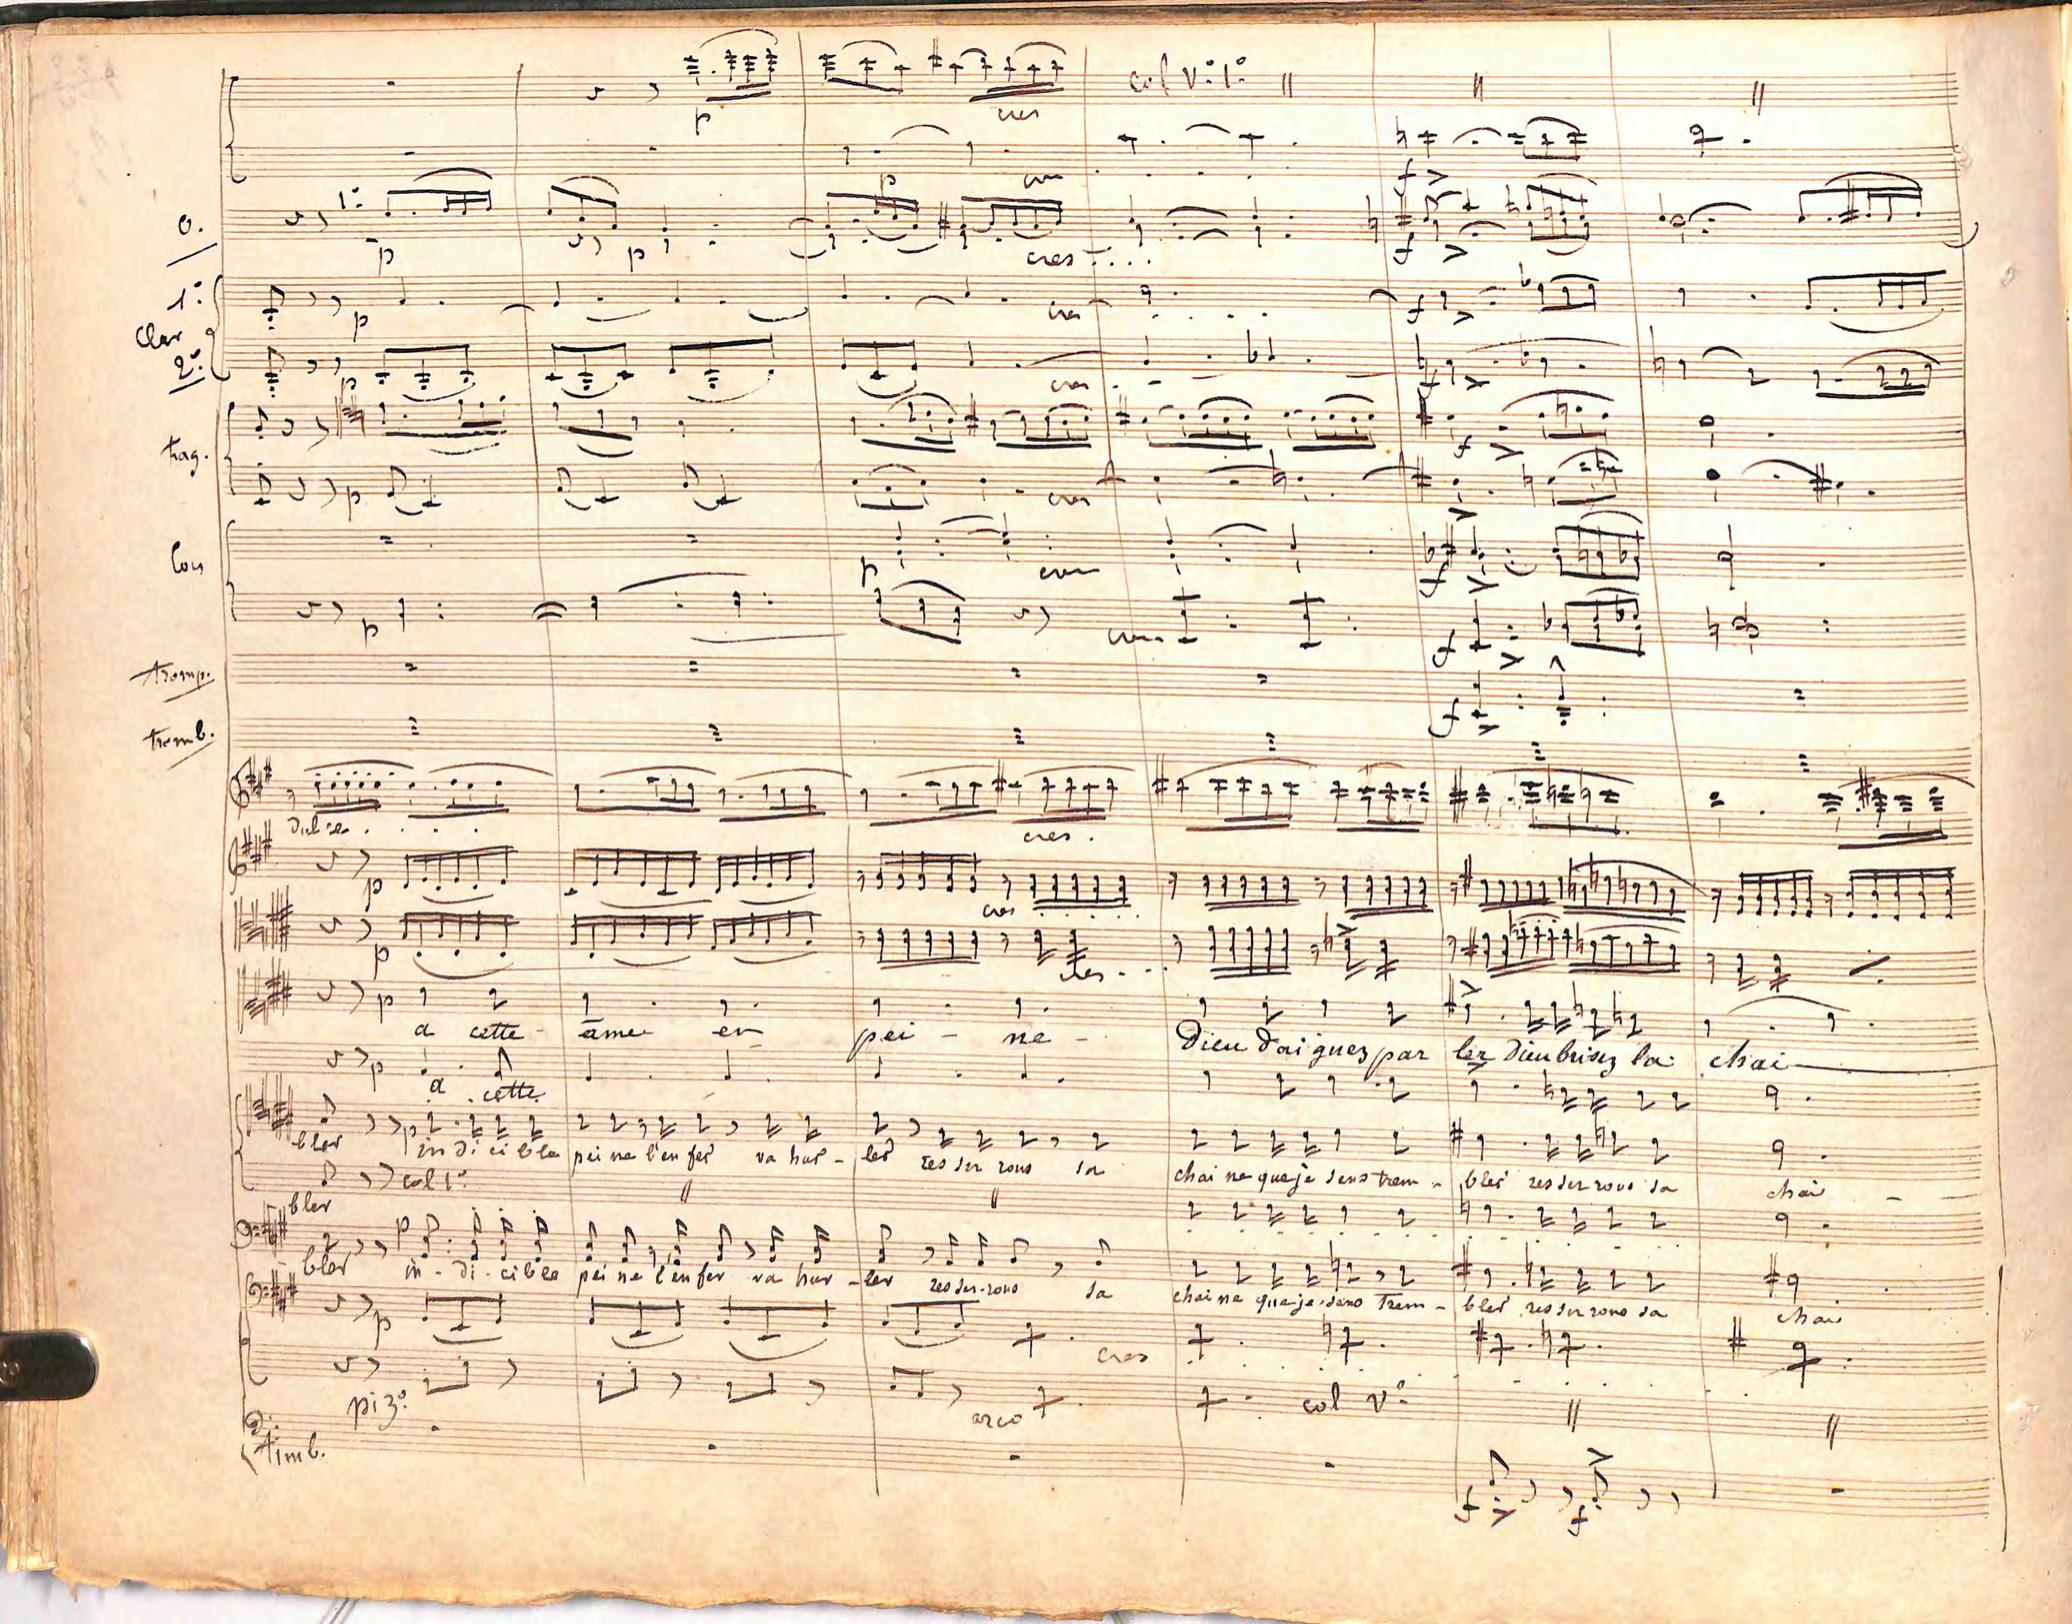 p cres col V.º 1.º
p cres
O. 1.º p p cres f
1.º p cres f
Clar
2.º p cres f
fag. f
p cres
Cors p cres f
p cres f
Tromp. f
tromb.
dolce cres.
p cres
p cres
p
a cette âme en pei - ne - Dieu daignez par ler Dieu brisez la chai
p
a cette
p
bler indicible peine l'enfer va hur - ler resserrons sa chaine que je sens trem - bler resserrons sa chai -
col 1.º
bler
p
bler in - di - cible peine l'enfer va hur - ler resserrons sa chaine que je sens trem - bler resserrons sa chai
p cres
piz.º arco col V.º
Timb. f f